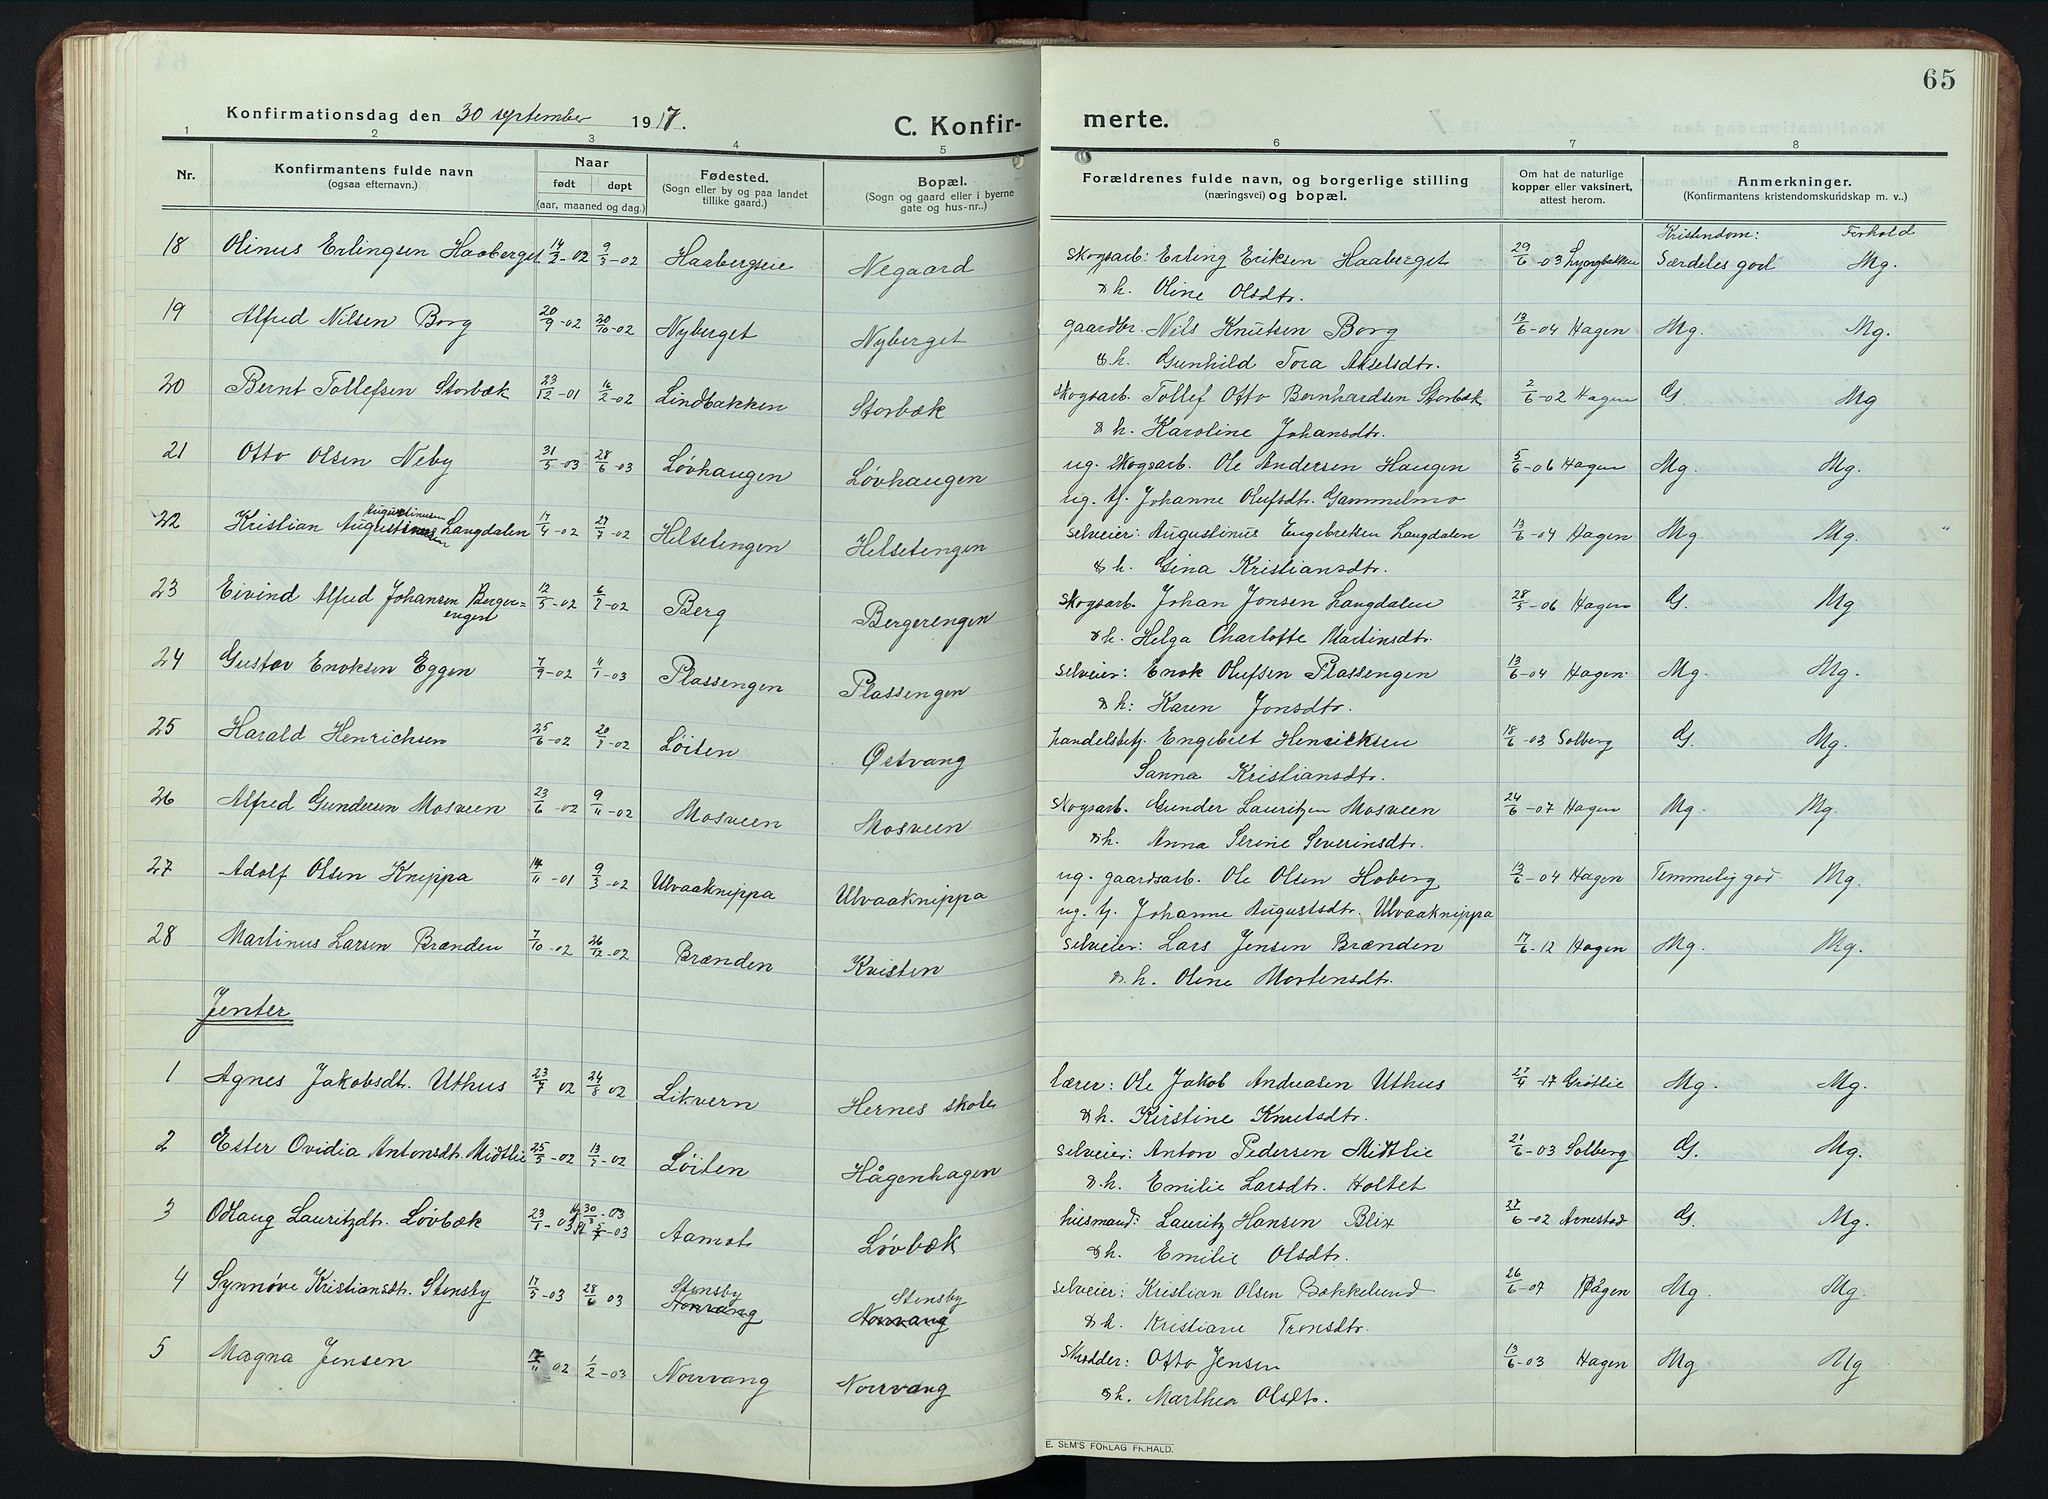 65
Konfirmationsdag den 30 september 1917.
C. Konfir-
merte.
1 2 3 4 5 6 7 8
Nr.
Konfirmantens fulde navn
(ogsaa efternavn.)
Naar
født døpt
(aar, maaned og dag.)
Fødested.
(Sogn eller by og paa landet
tillike gaard.)
Bopæl.
(Sogn og gaard eller i byerne
gate og hus-nr..)
Forældrenes fulde navn, og borgerlige stilling
(næringsvei) og bopæl.
Om hat de naturlige
kopper eller vaksinert,
attest herom.
Anmerkninger.
(Konfirmantens kristendomskundskap m. v..)
Kristendom: Forhold
18 Olinus Erlingsen Haaberget 14/2-02 9/3-02 Haabergseie Negaard Skogsarb: Erling Eriksen Haaberget 29/6-03 Lyngbakken Særdeles god Mg.
& h. Oline Olsdtr.
19 Alfred Nilsen Borg 20/9-02 30/10-02 Nyberget Nyberget gaardbr. Nils Knutsen Borg 13/6-04 Hagen Mg. Mg.
& h. Gunhild Tora Akselsdtr.
20 Bernt Tollefsen Storbæk 23/12-01 16/2-02 Lindbakken Storbæk Skogsarb. Tollef Otto Bernhardsen Storbæk 2/6-02 Hagen G. Mg
& h. Karoline Johansdtr.
21 Otto Olsen Neby 31/5-03 28/6-03 Løvhaugen Løvhaugen ug. Skogsarb. Ole Andersen Haugen 5/6-06 Hagen Mg. Mg.
ug. tj. Johanne Olufsdtr. Gammelmo
Augustinusen
22 Kristian Langdalen 17/4-02 27/7-02 Helsetengen Helsetengen selveier: Augustinus Engebretsen Langdalen 13/6-04 Hagen Mg. Mg.
& h. Gina Kristiansdtr.
23 Eivind Alfred Johansen Berger= 12/5-02 6/7-02 Berg Bergerengen Skogsarb. Johan Jonsen Langdalen 28/5-06 Hagen G. Mg
engen
& h. Helga Charlotte Martinsdtr.
24 Gustav Enoksen Eggen 7/9-02 11/1-03 Plassengen Plassengen selveier: Enok Olufsen Plassengen 13/6-04 Hagen Mg. Mg.
& h: Karen Jonsdtr.
25 Harald Henrichsen 25/6-02 20/7-02 Løiten Østvang handelsbetj. Engebret Henricksen 18/6-03 Solberg G. Mg.
Sanna Kristiansdtr.
26 Alfred Gundersen Mosveen 23/6-02 9/11-02 Mosveen Mosveen Skogsarb. Gunder Lauritzen Mosveen 24/6-07 Hagen Mg. Mg.
& h. Anna Serine Severinsdtr.
27 Adolf Olsen Knippa 14/11-01 9/3-02 Ulvaaknippa Ulvaaknippa ug. gaardsarb. Ole Olsen Hoberg 13/6-04 Hagen Temmelig god Mg.
ug. tj. Johanne Augustsdtr. Ulvaaknippa
28 Martinus Larsen Brænden 7/10-02 26/12-02 Brænden Kvisten selveier: Lars Jensen Brænden 17/6-12 Hagen Mg. Mg.
& h. Oline Mortensdtr.
Jenter
1 Agnes Jakobsdt. Uthus 23/7 02 24/8 02 Likvern Hernes skole lærer: Ole Jakob Andreasen Uthus 27/4-17 Grøtlie Mg. Mg.
& h. Kirstine Knutsdtr.
2 Ester Ovidia Antonsdt. Midtlie 25/5-02 13/7-02 Løiten Hågenhagen selveier: Anton Pedersen Midtlie 21/6-03 Solberg G. Mg.
& h. Emilie Larsdtr. Holtet
3 Odlaug Lauritzdt. Løvbæk 23/1-03 30/3-03 5/7-03 Aamot Løvbæk husmand: Lauritz Hansen Blix 27/6-02 Arnestad G. Mg.
& h. Emilie Olsdtr.
Stensby Stensby
4 Synnøve Kristiansdt. Stensby 17/5-03 28/6 03 Norvang selveier: Kristian Olsen Bækkelund 26/6-07 Hagen Mg. Mg.
& h. Kristiane Tronsdtr.
5 Magna Jensen 17/11 02 1/2-03 Norvang Norvang Skrædder: Otto Jensen 13/6-03 Hagen Mg Mg
& h. Marthea Olsdtr.
E. SEM'S FORLAG FR.HALD.